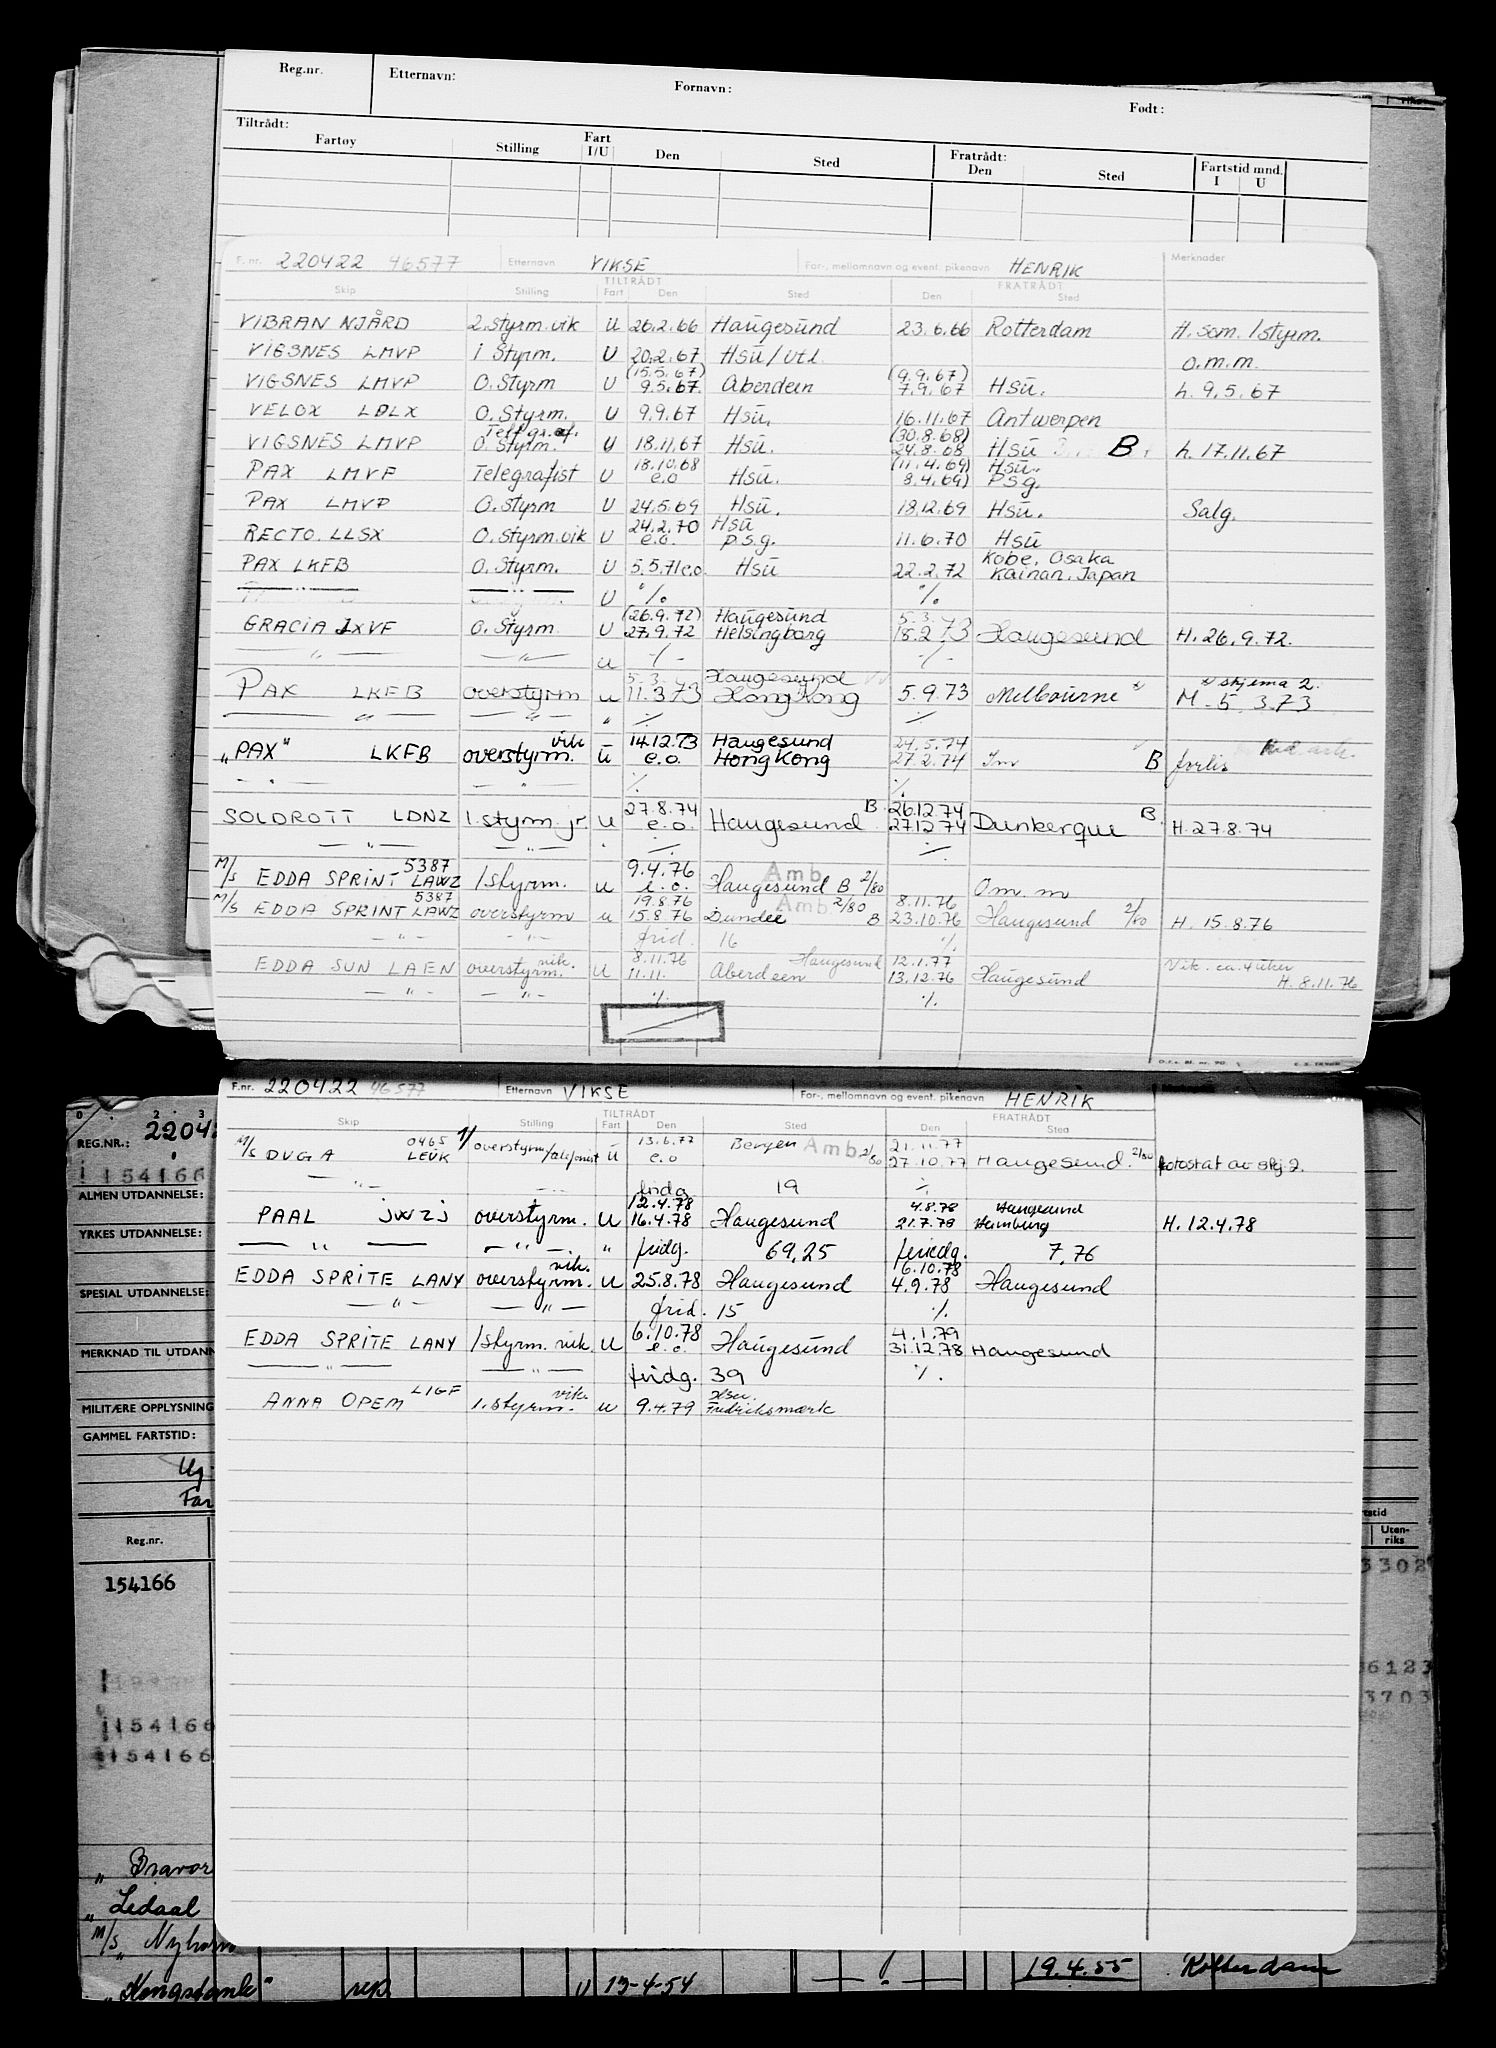 Reg.nr. Etternavn: Fornavn: Født:
Tiltrådt: Fratrådt:
Fartøy Stilling Fart I/U Den Sted Den Sted Fartstid mnd. I U
F. nr. 220422 46577 Etternavn VIKSE For-, mellomnavn og event. pikenavn HENRIK Merknader
TILTRÅDT FRATRÅDT
Skip Stilling Fart Den Sted Den Sted
VIBRAN NJÅRD 2.styrm.vik U 26.2.66 Haugesund 23.6.66 Rotterdam H. som 1styrm.
VIGSNES LMVP 1 Styrm. U 20.2.67 Hsu/utl. o.m.m.
(15.5.67) (9.9.67)
VIGSNES LMVP O.Styrm U 9.5.67 Aberdeen 7.9.67 Hsu. h. 9.5.67
VELOX LDLX O.Styrm. U 9.9.67 Hsu. 16.11.67 Antwerpen
Telegraf. (30.8.68)
VIGSNES LMVP O.Styrm. U 18.11.67 Hsu. 24.8.68 Hsu B h. 17.11.67
18.10.68 (11.4.69) Hsu.
PAX LMVF Telegrafist U e.o Hsu. 8.4.69) p.s.g.
PAX LMVP O.Styrm U 24.5.69 Hsu. 18.12.69 Hsu. Salg.
24.2.70 Hsu
RECTO. LLSX O.Styrm.vik U e.o. p.s.g. 11.6.70 Hsu
Kobe, Osaka
PAX LKFB O.Styrm. U 5.5.71 e.o. Hsu 22.2.72 Kainan, Japan
— " — — " — U "/. "/.
(26.9.72) Haugesund 5.3.
GRACIA JXVF O.Styrm U 27.9.72 Helsingborg 18.2.73 Haugesund H. 26.9.72.
— " — — " — u -/- -/-
5.3. Haugesund skjema 2.
PAX LKFB overstyrm u 11.3.73 Hong Kong 5.9.73 Melbourne M. 5.3.73
— " — — " — " ./. ./.
vik 14.12.73 Haugesund 24.5.74
"PAX" LKFB overstyrm. u e.o. Hong Kong 27.2.74 Im B forlis
— " — — " — ./. ./.
27.8.74 B. 26.12.74 B.
SOLDROTT LDNZ 1.styrm jr. u e.o. Haugesund 27.12.74 Dunkerque H. 27.8.74
— " — — " — ./. ./.
5387 9.4.76 Amb.
M/S EDDA SPRINT LAWZ 1styrm. u e.o. Haugesund B 2/80 Om. m
5387 19.8.76 Amb. 2/80 8.11.76
M/S EDDA SPRINT LAWZ overstyrm u 15.8.76 Dundee B 23.10.76 Haugesund 2/80 H. 15.8.76
— " — — " — frid. 16 ./.
vik. 8.11.76 Haugesund 12.1.77 Vik. ca. 4 uker
EDDA SUN LAEN overstyrm. U 11.11. Aberdeen 13.12.76 Haugesund H. 8.11.76
— " — — " — ./. ./.
F.nr. 220422 46577 Etternavn VIKSE For-, mellomnavn og event. pikenavn HENRIK
TILTRÅDT FRATRÅDT
Skip Stilling Fart Den Sted Den Sted
0465 13.6.77 21.11.77
M/S DUGA LEUK 1/ overstyrm U e.o Bergen Amb 2/80 27.10.77 Haugesund. 2/80 fotostat av skj 2.
— " — fridg 19 ./.
12.4.78 4.8.78 Haugesund
PAAL JWZJ overstyrm. U 16.4.78 Haugesund 21.7.78 Hamburg H. 12.4.78
— " — — " — " fridg. 69,25 feriedg. 7,76
vik. 6.10.78
EDDA SPRITE LANY overstyrm. U 25.8.78 Haugesund 4.9.78 Haugesund
— " — — " — frid. 15 ./.
6.10.78 4.1.79
EDDA SPRITE LANY 1styrm. vik. U e.o. Haugesund 31.12.78 Haugesund
— " — — " — fridg. 39 ./.
LIGF vik. Hsu.
ANNA OPEM 1.styrm. u 9.4.79 Fredriksmark
0 . 2 . 3
REG.NR.: 2204
154166
ALMEN UTDANNELSE:
YRKES UTDANNELSE:
SPESIAL UTDANNELSE:
MERKNAD TIL UTDANN
MILITÆRE OPPLYSNING
GAMMEL FARTSTID:
Far
Reg.nr. Uten-riks
154166 3302
6123
3703
154166
154166
" Bravor
" Ledaal
M/S "
"Kongstank" rep. U 13-4-54 19.4.55 Rotterdam